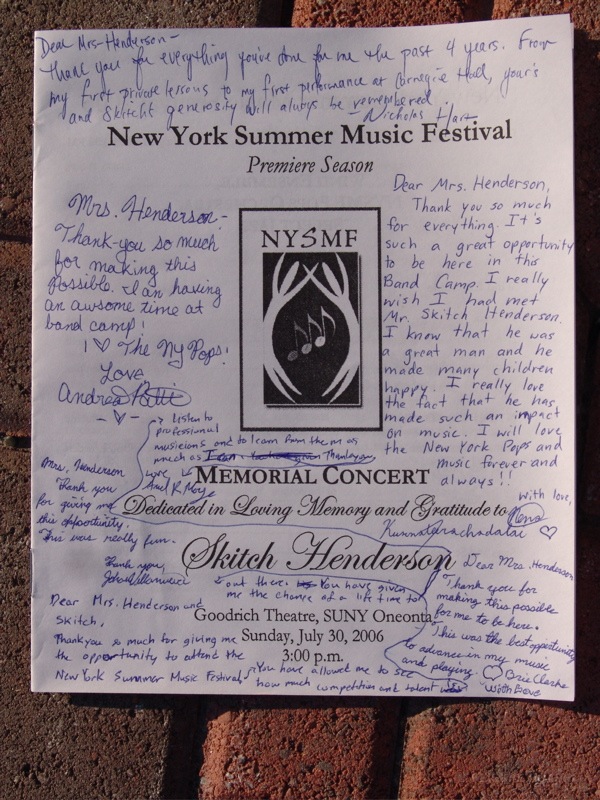 Dear Mrs. Henderson-
Thank you for everything you've done for me the past 4 years. From
my first private lessons to my first performance at Carnegie Hall, your's
and Skitch's generosity will always be remembered.
-Nicholas Hart
New York Summer Music Festival
Premiere Season
Mrs. Henderson-
Thank-you so much
for making this
Possible. I an having
an awsome time at
band camp!
I ♡ The Ny Pops!
Love
Andrea
-♡-
NYSMF
Dear Mrs. Henderson,
Thank you so much
for everything. It's
such a great opportunity
to be here in this
Band Camp. I really
wish I had met
Mr. Skitch Henderson.
I know that he was
a great man and he
made many children
happy. I really love
the fact that he has
made such an impact
on music. I will love
the New York Pops and
music forever and
always!!
with love,
♡
Mrs. Henderson
Thank you
for giving me
this opportunity.
This was really fun.
Thank you,
MEMORIAL CONCERT
Dedicated in Loving Memory and Gratitude to
Skitch Henderson
Goodrich Theatre, SUNY Oneonta
Sunday, July 30, 2006
3:00 p.m.
Dear Mrs. Henderson and
Skitch,
Thankyou so much for giving me
the opportunity to attend the
New York Summer Music Festival.
You have allowed me to see
how much competition and talent
out there. You have given
me the chance of a life time to
listen to
professional
musicians and to learn from them as
much as I can. Thankyou
Love
Dear Mrs. Henderson
Thank you for
making this possible
for me to be here.
This was the best opportunity
to advance in my music
and playing. ♡ Brie Clarke
With Love